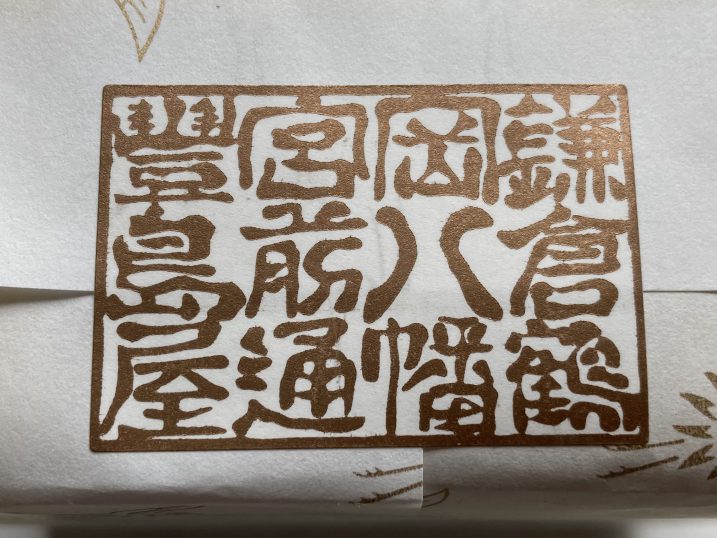 鎌倉鶴
岡八幡
宮前通
豐島屋